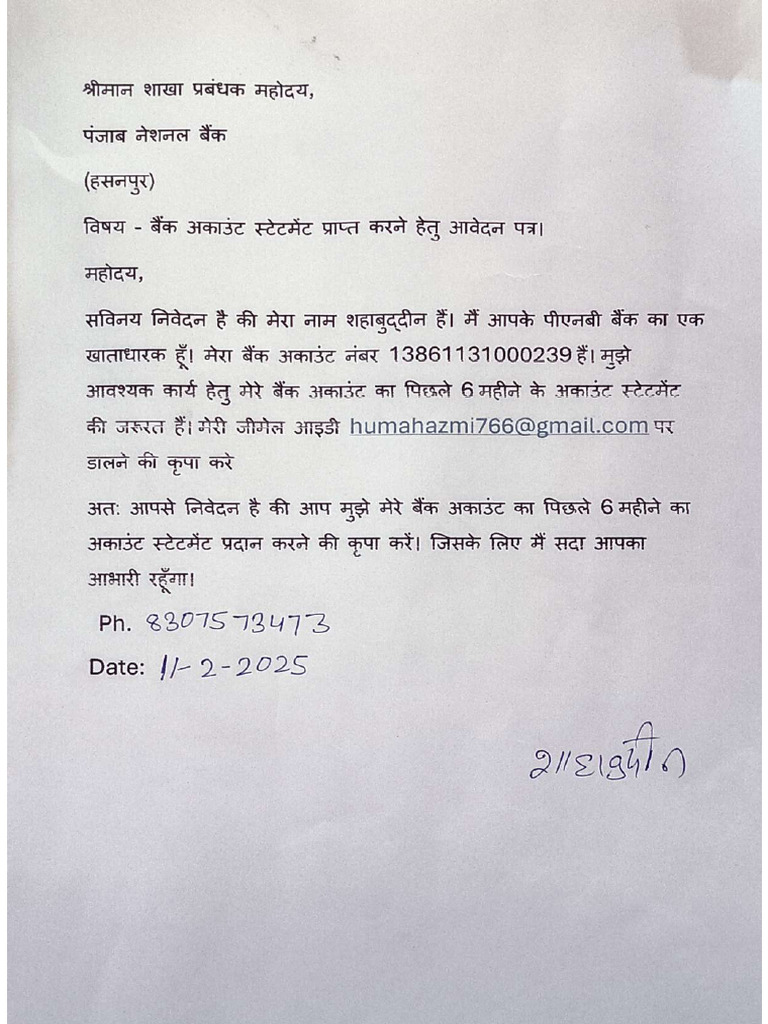 श्रीमान शाखा प्रबंधक महोदय,
पंजाब नेशनल बैंक
(हसनपुर)
विषय - बैंक अकाउंट स्टेटमेंट प्राप्त करने हेतु आवेदन पत्र।
महोदय,
सविनय निवेदन है की मेरा नाम शहाबुद्दीन हैं। मैं आपके पीएनबी बैंक का एक
खाताधारक हूँ। मेरा बैंक अकाउंट नंबर 13861131000239 हैं। मुझे
आवश्यक कार्य हेतु मेरे बैंक अकाउंट का पिछले 6 महीने के अकाउंट स्टेटमेंट
की जरूरत हैं। मेरी जीमेल आइडी humahazmi766@gmail.com पर
डालने की कृपा करे
अतः आपसे निवेदन है की आप मुझे मेरे बैंक अकाउंट का पिछले 6 महीने का
अकाउंट स्टेटमेंट प्रदान करने की कृपा करें। जिसके लिए मैं सदा आपका
आभारी रहूँगा।
Ph. 8307573473
Date: 11-2-2025
शाहाबुदीन